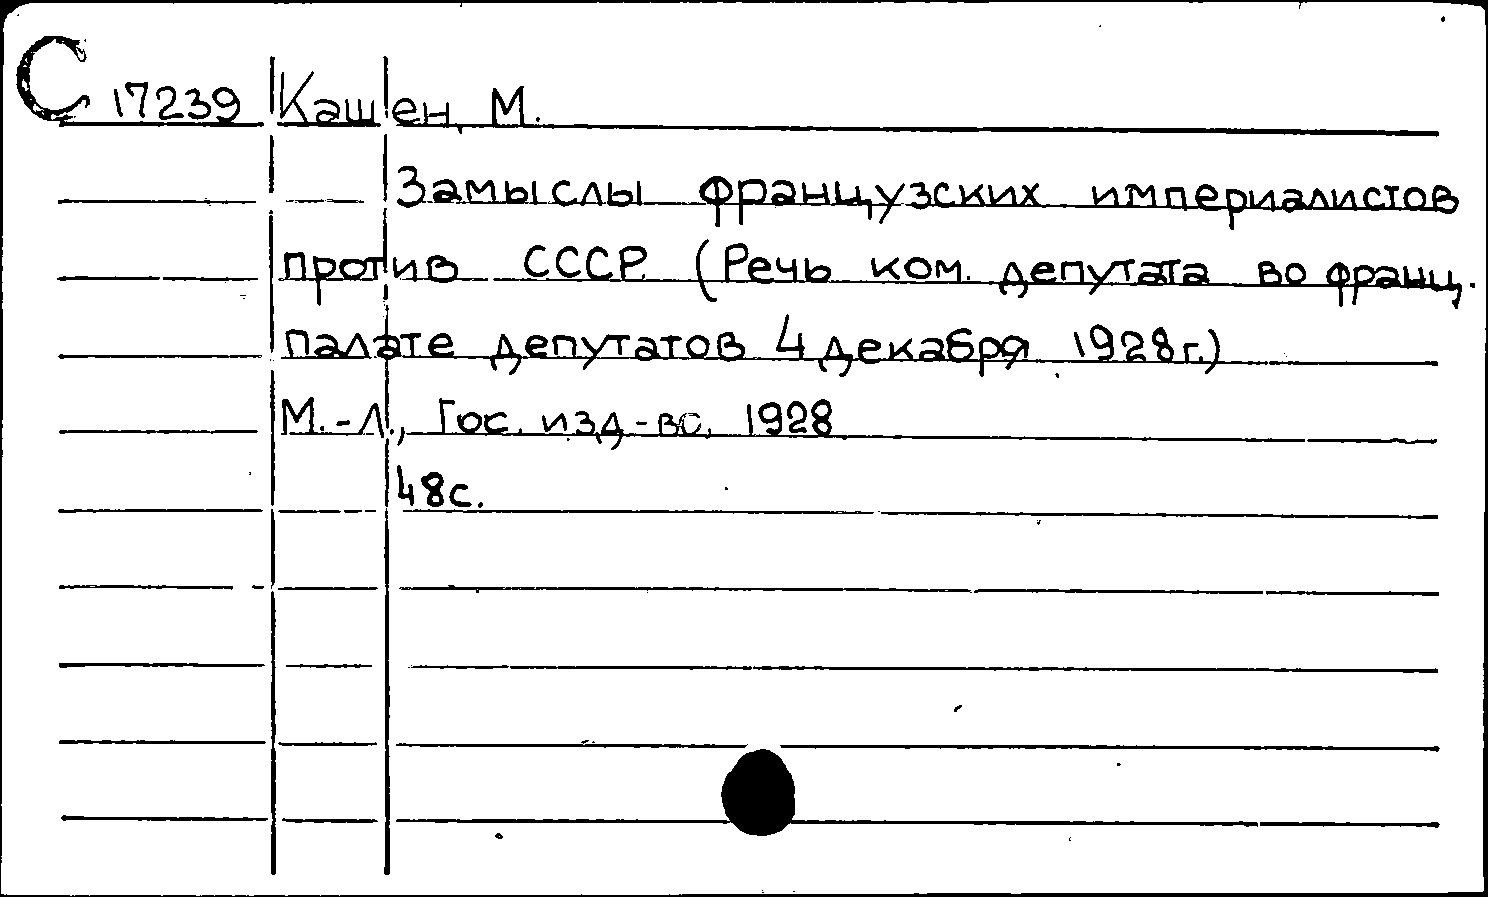 С 17239 Кашен, М.
Замыслы французских империалистов
против СССР. (Речь ком. депутата во франц.
палате депутатов 4 декабря 1928г.)
М.-Л., Гос. изд-во, 1928
48с.